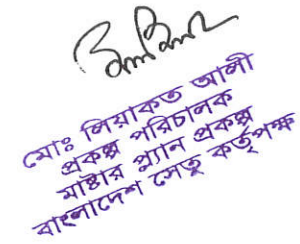 মোঃ লিয়াকত আলী
প্রকল্প পরিচালক
মাষ্টার প্ল্যান প্রকল্প
বাংলাদেশ সেতু কর্তৃপক্ষ